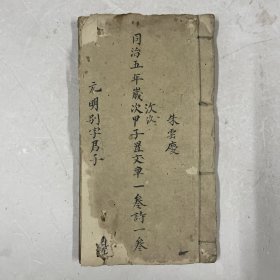 朱雲慶
同治五年歲次甲子置文章一叁詩一叁
次式
元明別字爲子